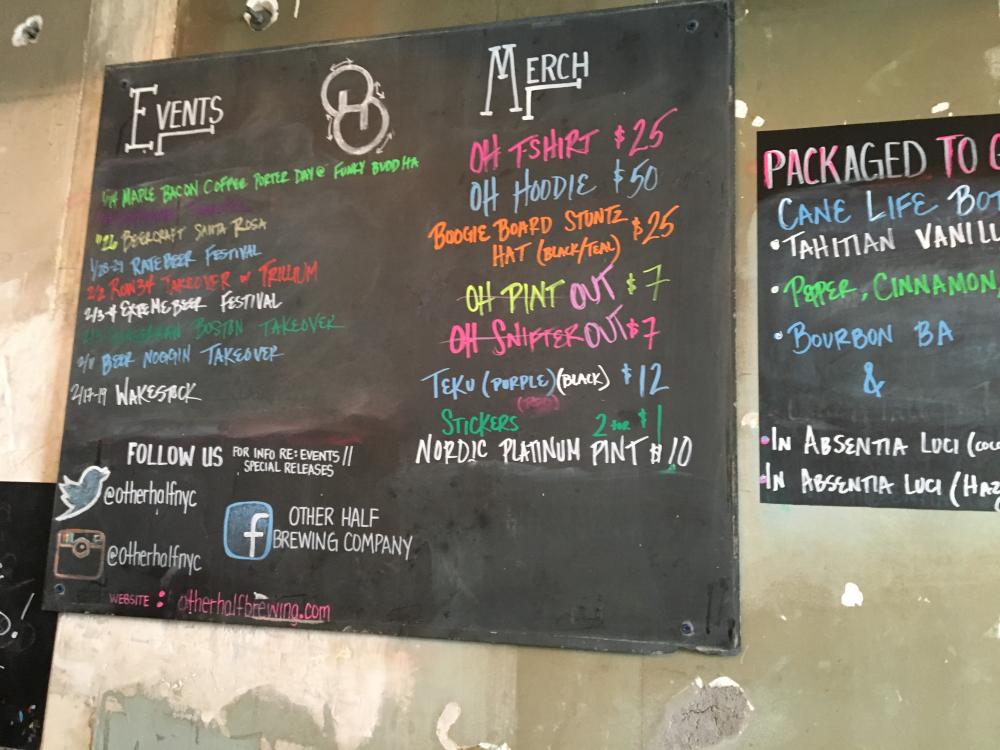 EVENTS
MAPLE BACON COFFEE PORTER DAY @ FUNKY BUDDHA
BEERCRAFT SANTA ROSA
RATEBEER FESTIVAL
2/2 ROW34 TAKEOVER W/ TRILLIUM
2/3-4 EXTREME BEER FESTIVAL
BOSTON TAKEOVER
2/11 BEER NOGGIN TAKEOVER
2/17-19 WAKESTOCK
FOLLOW US FOR INFO RE: EVENTS //
SPECIAL RELEASES
@otherhalfnyc
f OTHER HALF
BREWING COMPANY
@otherhalfnyc
WEBSITE: otherhalfbrewing.com
MERCH
OH T-SHIRT $25
OH HOODIE $50
BOOGIE BOARD STUNTZ
HAT (BLACK/TEAL) $25
OH PINT OUT $7
OH SNIFTER OUT $7
TEKU (PURPLE) (BLACK) $12
(RED)
STICKERS 2 FOR $1
NORDIC PLATINUM PINT $10
PACKAGED TO
CANE LIFE
• TAHITIAN
• PEPPER, CINNAMON,
• BOURBON BA
&
• IN ABSENTIA LUCI
• IN ABSENTIA LUCI